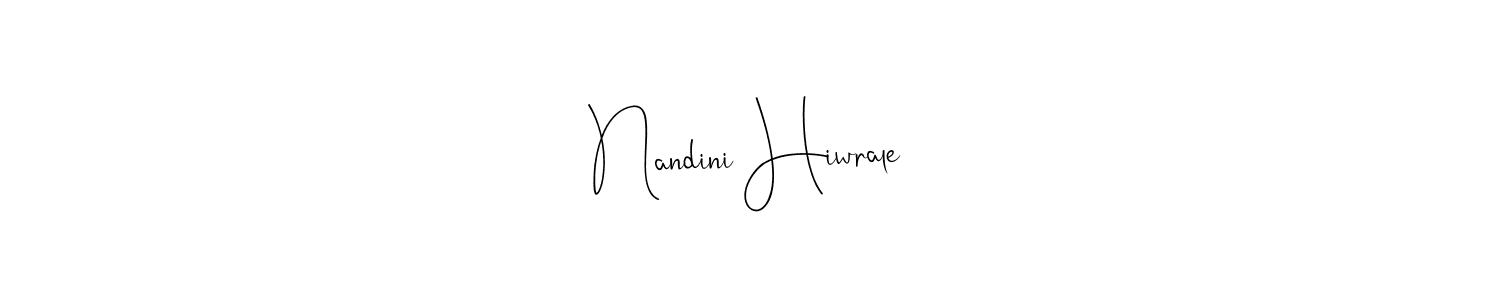 Nandini Hiwrale